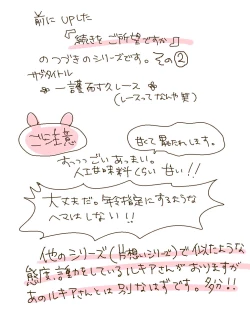 前に UPした
『続きをご所望ですか』
のつづきのシリーズです。その②
サブタイトル
※ 一護石すえレース ※
(レースってなんや笑)
ご注意
甘くて暴れてます。
すっっっごいあっまい。
人工甘味料くらい甘い!!
大丈夫だ。年令指定にするような
ヘマはしない!!
他のシリーズ(片想いシリーズ)で似たような
態度、護かをしているルキアさんがおりますが
あのルキアさんとは別なはずです。多分!!